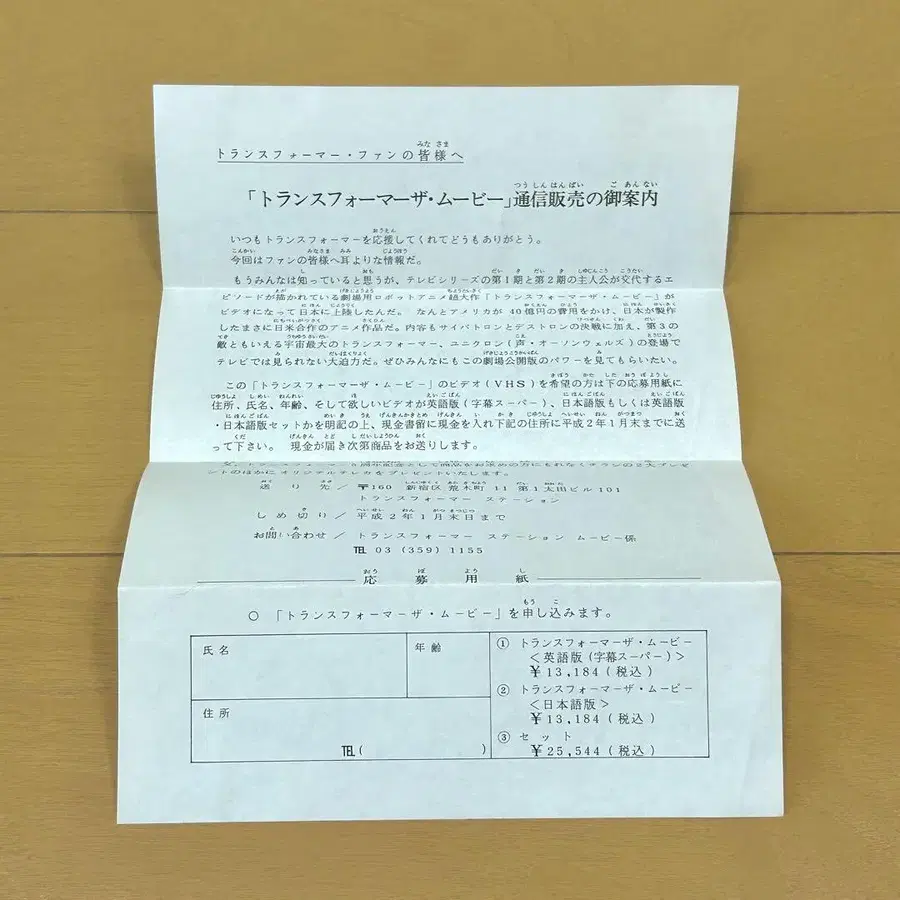 トランスフォーマー・ファンの皆様へ
「トランスフォーマーザ・ムービー」通信販売の御案内
いつもトランスフォーマーを応援してくれてどうもありがとう。
今回はファンの皆様へ耳よりな情報だ。
もうみんなは知っていると思うが、テレビシリーズの第1期と第2期の主人公が交代するエ
ピソードが描かれている劇場用ロボットアニメ超大作「トランスフォーマーザ・ムービー」が
ビデオになって日本に上陸したんだ。 なんとアメリカが40億円の費用をかけ、日本が製作
したまさに日米合作のアニメ作品だ。内容もサイバトロンとデストロンの決戦に加え、第3の
敵ともいえる宇宙最大のトランスフォーマー、ユニクロン(声・オーソンウェルズ)の登場で
テレビでは見られない大迫力だ。ぜひみんなにもこの劇場公開版のパワーを見てもらいたい。
この「トランスフォーマーザ・ムービー」のビデオ(VHS)を希望の方は下の応募用紙に
住所、氏名、年齢、そして欲しいビデオが英語版(字幕スーパー)、日本語版もしくは英語版
・日本語版セットかを明記の上、現金書留に現金を入れ下記の住所に平成2年1月末までに送
って下さい。 現金が届き次第商品をお送りします。
トランスフォーマー5周年記念として商品をお求めの方にもれなくチラシの2大プレゼ
ントのほかにオリジナルテレカをプレゼントいたします。
送り先/〒160 新宿区荒木町11 第1太田ビル101
トランスフォーマー ステーション
しめ切り/平成2年1月末日まで
お問い合わせ/トランスフォーマー ステーション ムービー係
TEL 03(359)1155
応募用紙
○ 「トランスフォーマーザ・ムービー」を申し込みます。
氏名
年齢
住所
TEL( )
① トランスフォーマーザ・ムービー
<英語版(字幕スーパー)>
¥13,184(税込)
② トランスフォーマーザ・ムービー
<日本語版>
¥13,184(税込)
③ セット
¥25,544(税込)